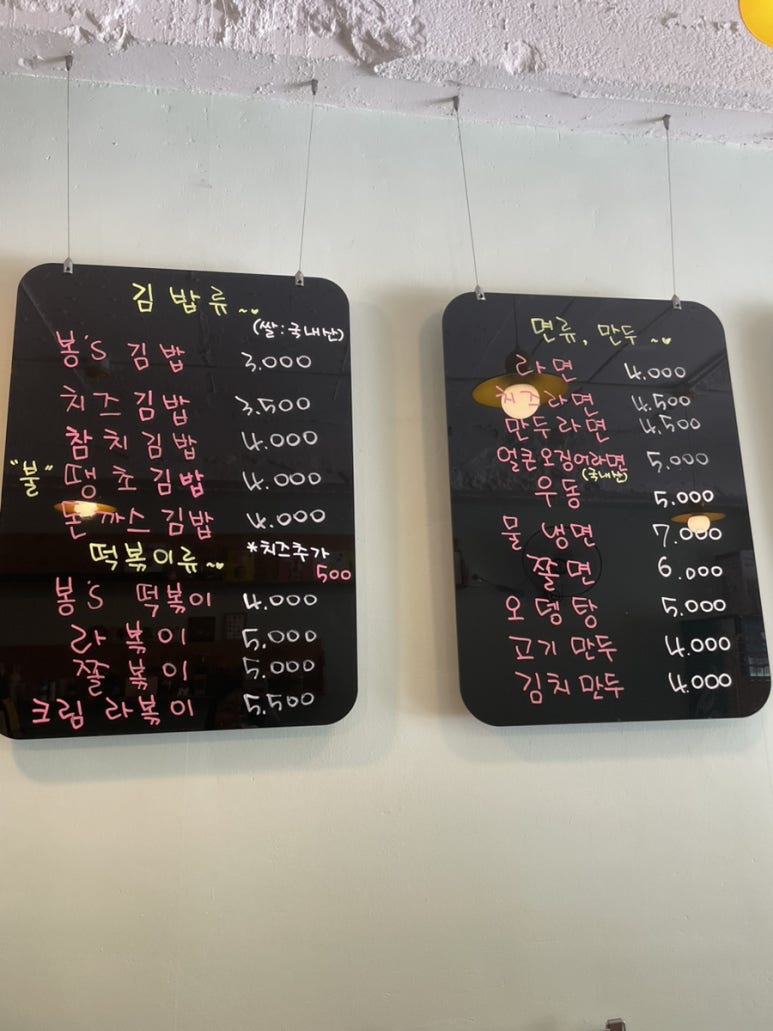 김밥류~
(쌀:국내산)
봉's 김밥 3.000
치즈김밥 3.500
참치김밥 4.000
"불" 땡초김밥 4.000
돈까스김밥 4.000
떡볶이류~ *치즈추가 500
봉's 떡볶이 4.000
라볶이 5.000
쫄볶이 5.000
크림 라볶이 5.500
면류, 만두~
라면 4.000
치즈라면 4.500
만두라면 4.500
얼큰오징어라면 5.000
(국내산)
우동 5.000
물냉면 7.000
쫄면 6.000
오뎅탕 5.000
고기만두 4.000
김치만두 4.000